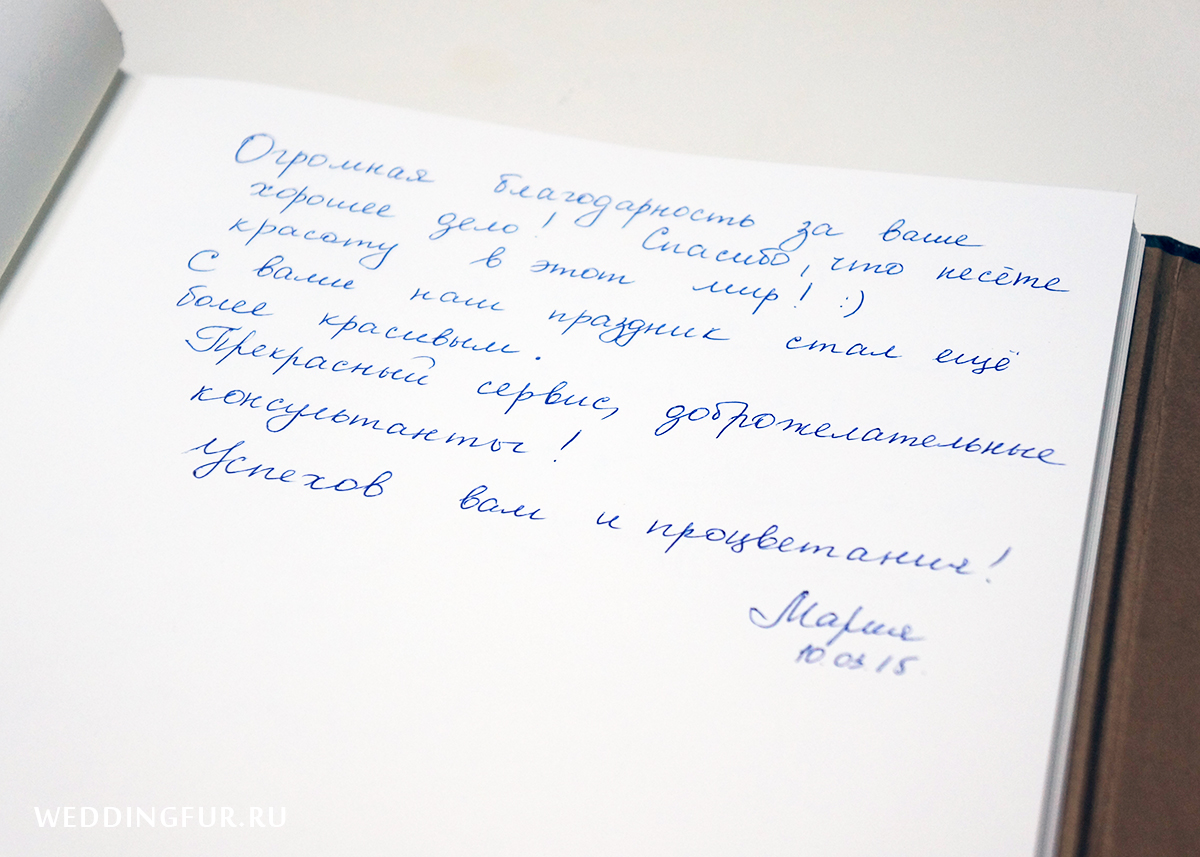 Огромная благодарность за ваше
хорошее дело! Спасибо, что несёте
красоту в этот мир! :)
С вами наш праздник стал ещё
более красивым.
Прекрасный сервис, доброжелательные
консультанты!
Успехов вам и процветания!
Мария
10.03.15.
WEDDINGFUR.RU